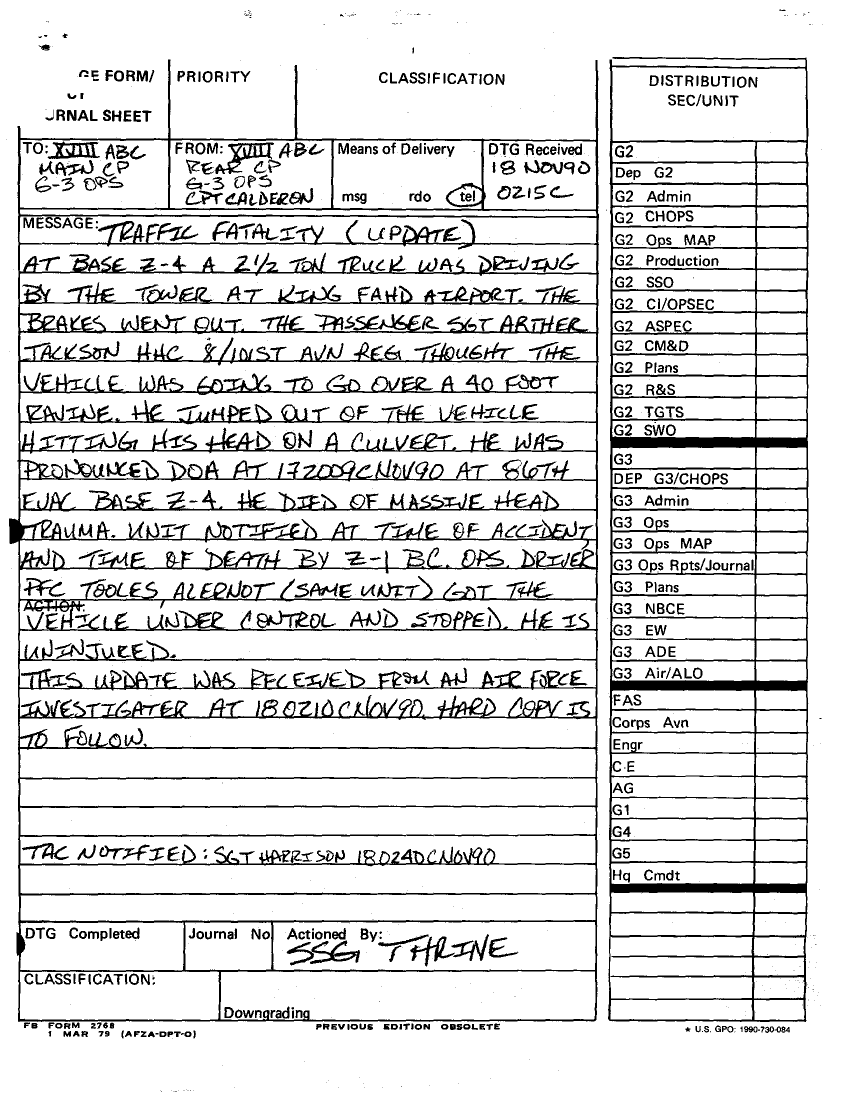 GE FORM/
RNAL SHEET
PRIORITY
CLASSIFICATION
TO: XVIII ABC
MAIN CP
G-3 OPS
FROM: XVIII ABC
REAR CP
G-3 OPS
CPT CALDERON
Means of Delivery
msg rdo tel
DTG Received
18 NOV90
0215C
MESSAGE: TRAFFIC FATALITY (UPDATE)
AT BASE Z-4 A 2 1/2 TON TRUCK WAS DRIVING
BY THE TOWER AT KING FAHD AIRPORT. THE
BRAKES WENT OUT. THE PASSENGER SGT ARTHER
JACKSON HHC 8/101ST AVN REG THOUGHT THE
VEHICLE WAS GOING TO GO OVER A 40 FOOT
RAVINE. HE JUMPED OUT OF THE VEHICLE
HITTING HIS HEAD ON A CULVERT. HE WAS
PRONOUNCED DOA AT 172009CNOV90 AT 86TH
EVAC BASE Z-4. HE DIED OF MASSIVE HEAD
TRAUMA. UNIT NOTIFIED AT TIME OF ACCIDENT
AND TIME OF DEATH BY Z-1 BC. OPS. DRIVER
PFC TOOLES, ALERNOT (SAME UNIT) GOT THE
ACTION:
VEHICLE UNDER CONTROL AND STOPPED. HE IS
UNINJURED.
THIS UPDATE WAS RECEIVED FROM AN AIR FORCE
INVESTIGATER AT 180210CNOV90. HARD COPY IS
TO FOLLOW.
TAC NOTIFIED: SGT HARRISON 180240CNOV90
DTG Completed
Journal No
Actioned By:
SSG THRINE
CLASSIFICATION:
Downgrading
FB FORM 2768
1 MAR 79 (AFZA-DPT-O)
PREVIOUS EDITION OBSOLETE
DISTRIBUTION
SEC/UNIT
G2
Dep G2
G2 Admin
G2 CHOPS
G2 Ops MAP
G2 Production
G2 SSO
G2 CI/OPSEC
G2 ASPEC
G2 CM&D
G2 Plans
G2 R&S
G2 TGTS
G2 SWO
G3
DEP G3/CHOPS
G3 Admin
G3 Ops
G3 Ops MAP
G3 Ops Rpts/Journal
G3 Plans
G3 NBCE
G3 EW
G3 ADE
G3 Air/ALO
FAS
Corps Avn
Engr
C-E
AG
G1
G4
G5
Hq Cmdt
* U.S. GPO: 1990-730-084